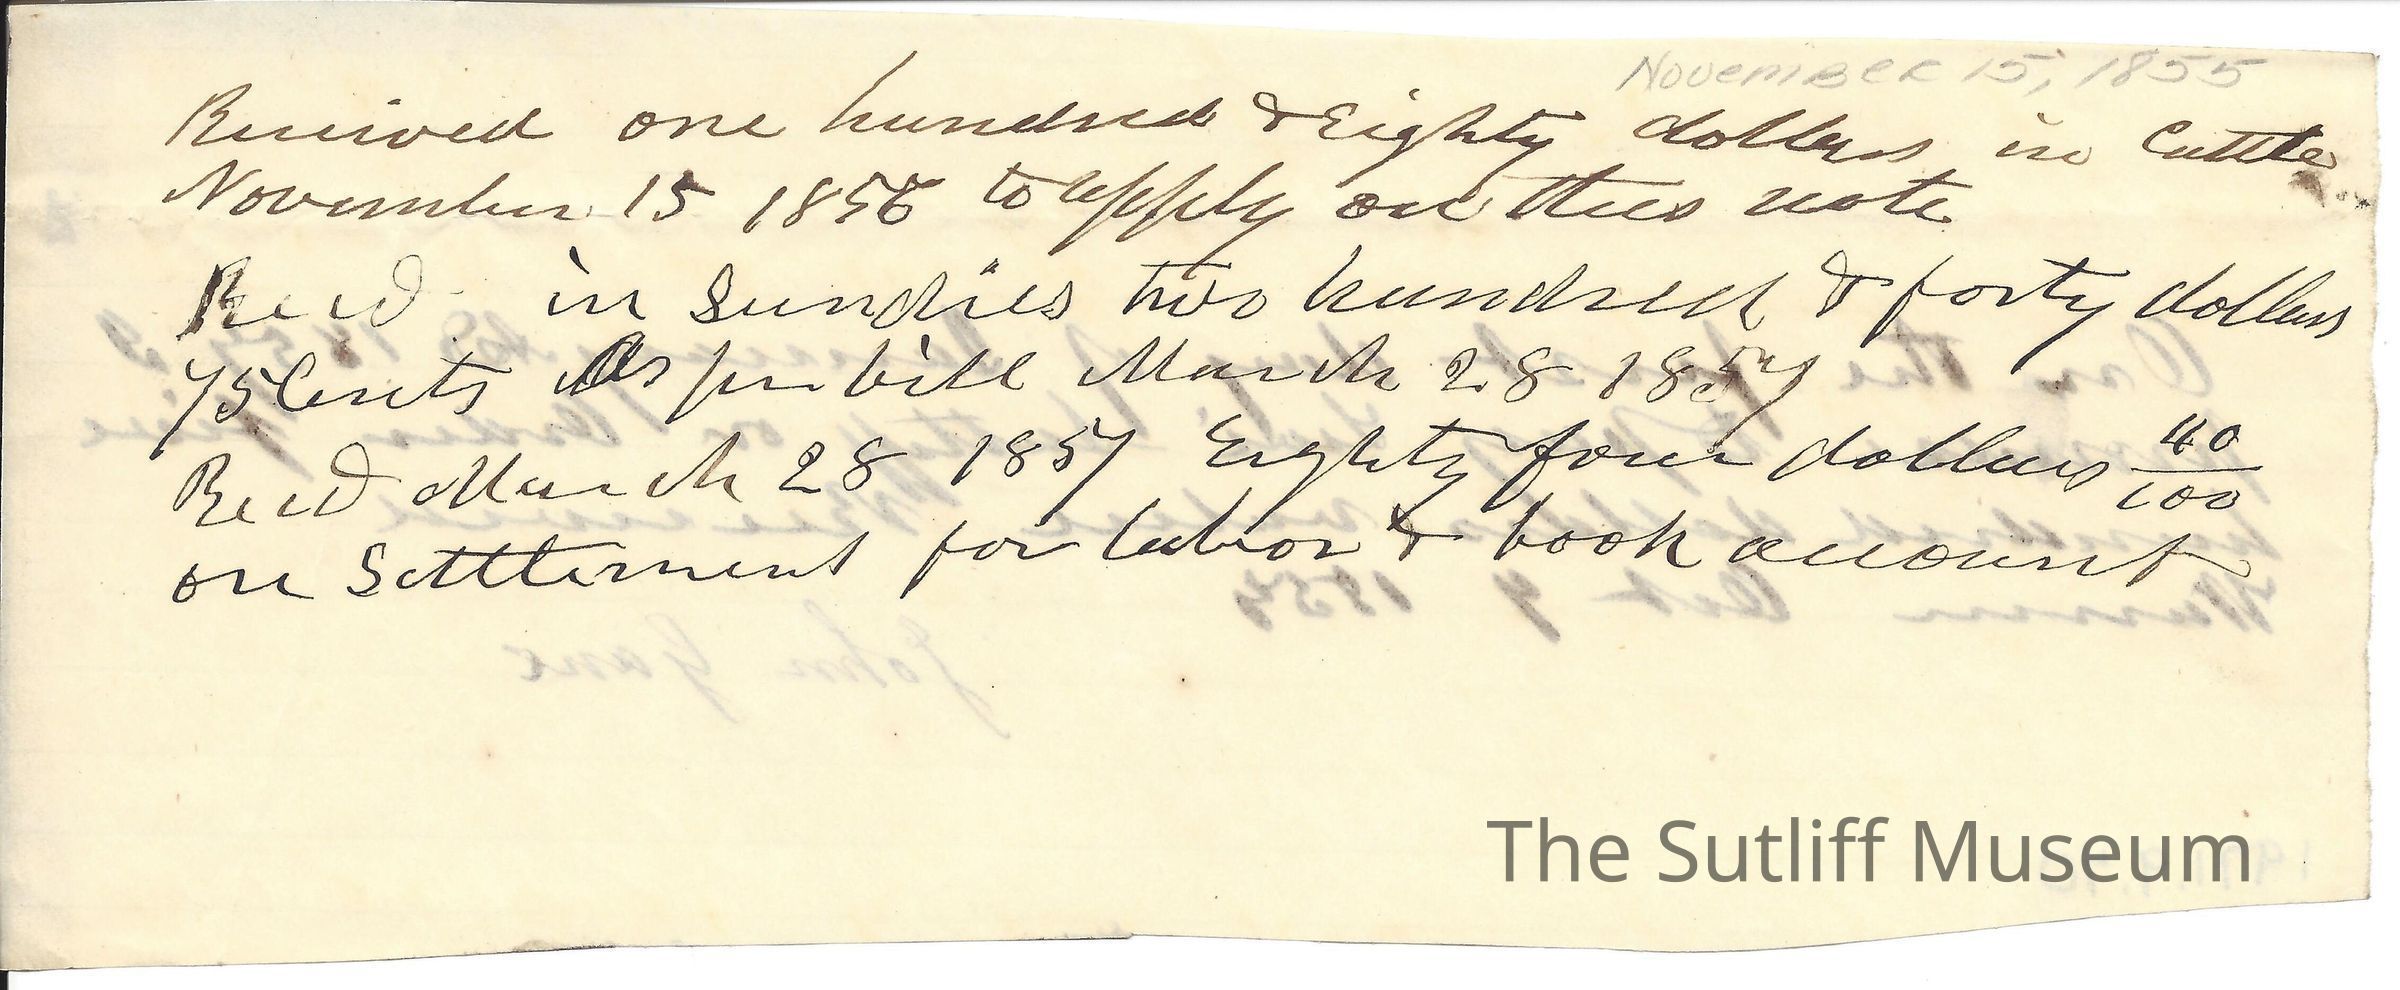 November 15, 1855
Received one hundred & Eighty dollars in Cattle
November 15 1856 to apply on this note
Recd in Sundries two hundred & forty dollars
75 Cents As per bill March 28 1857
Recd March 28 1857 Eighty four dollars 40/100
on Settlement for labor & book account
John Gane
The Sutliff Museum